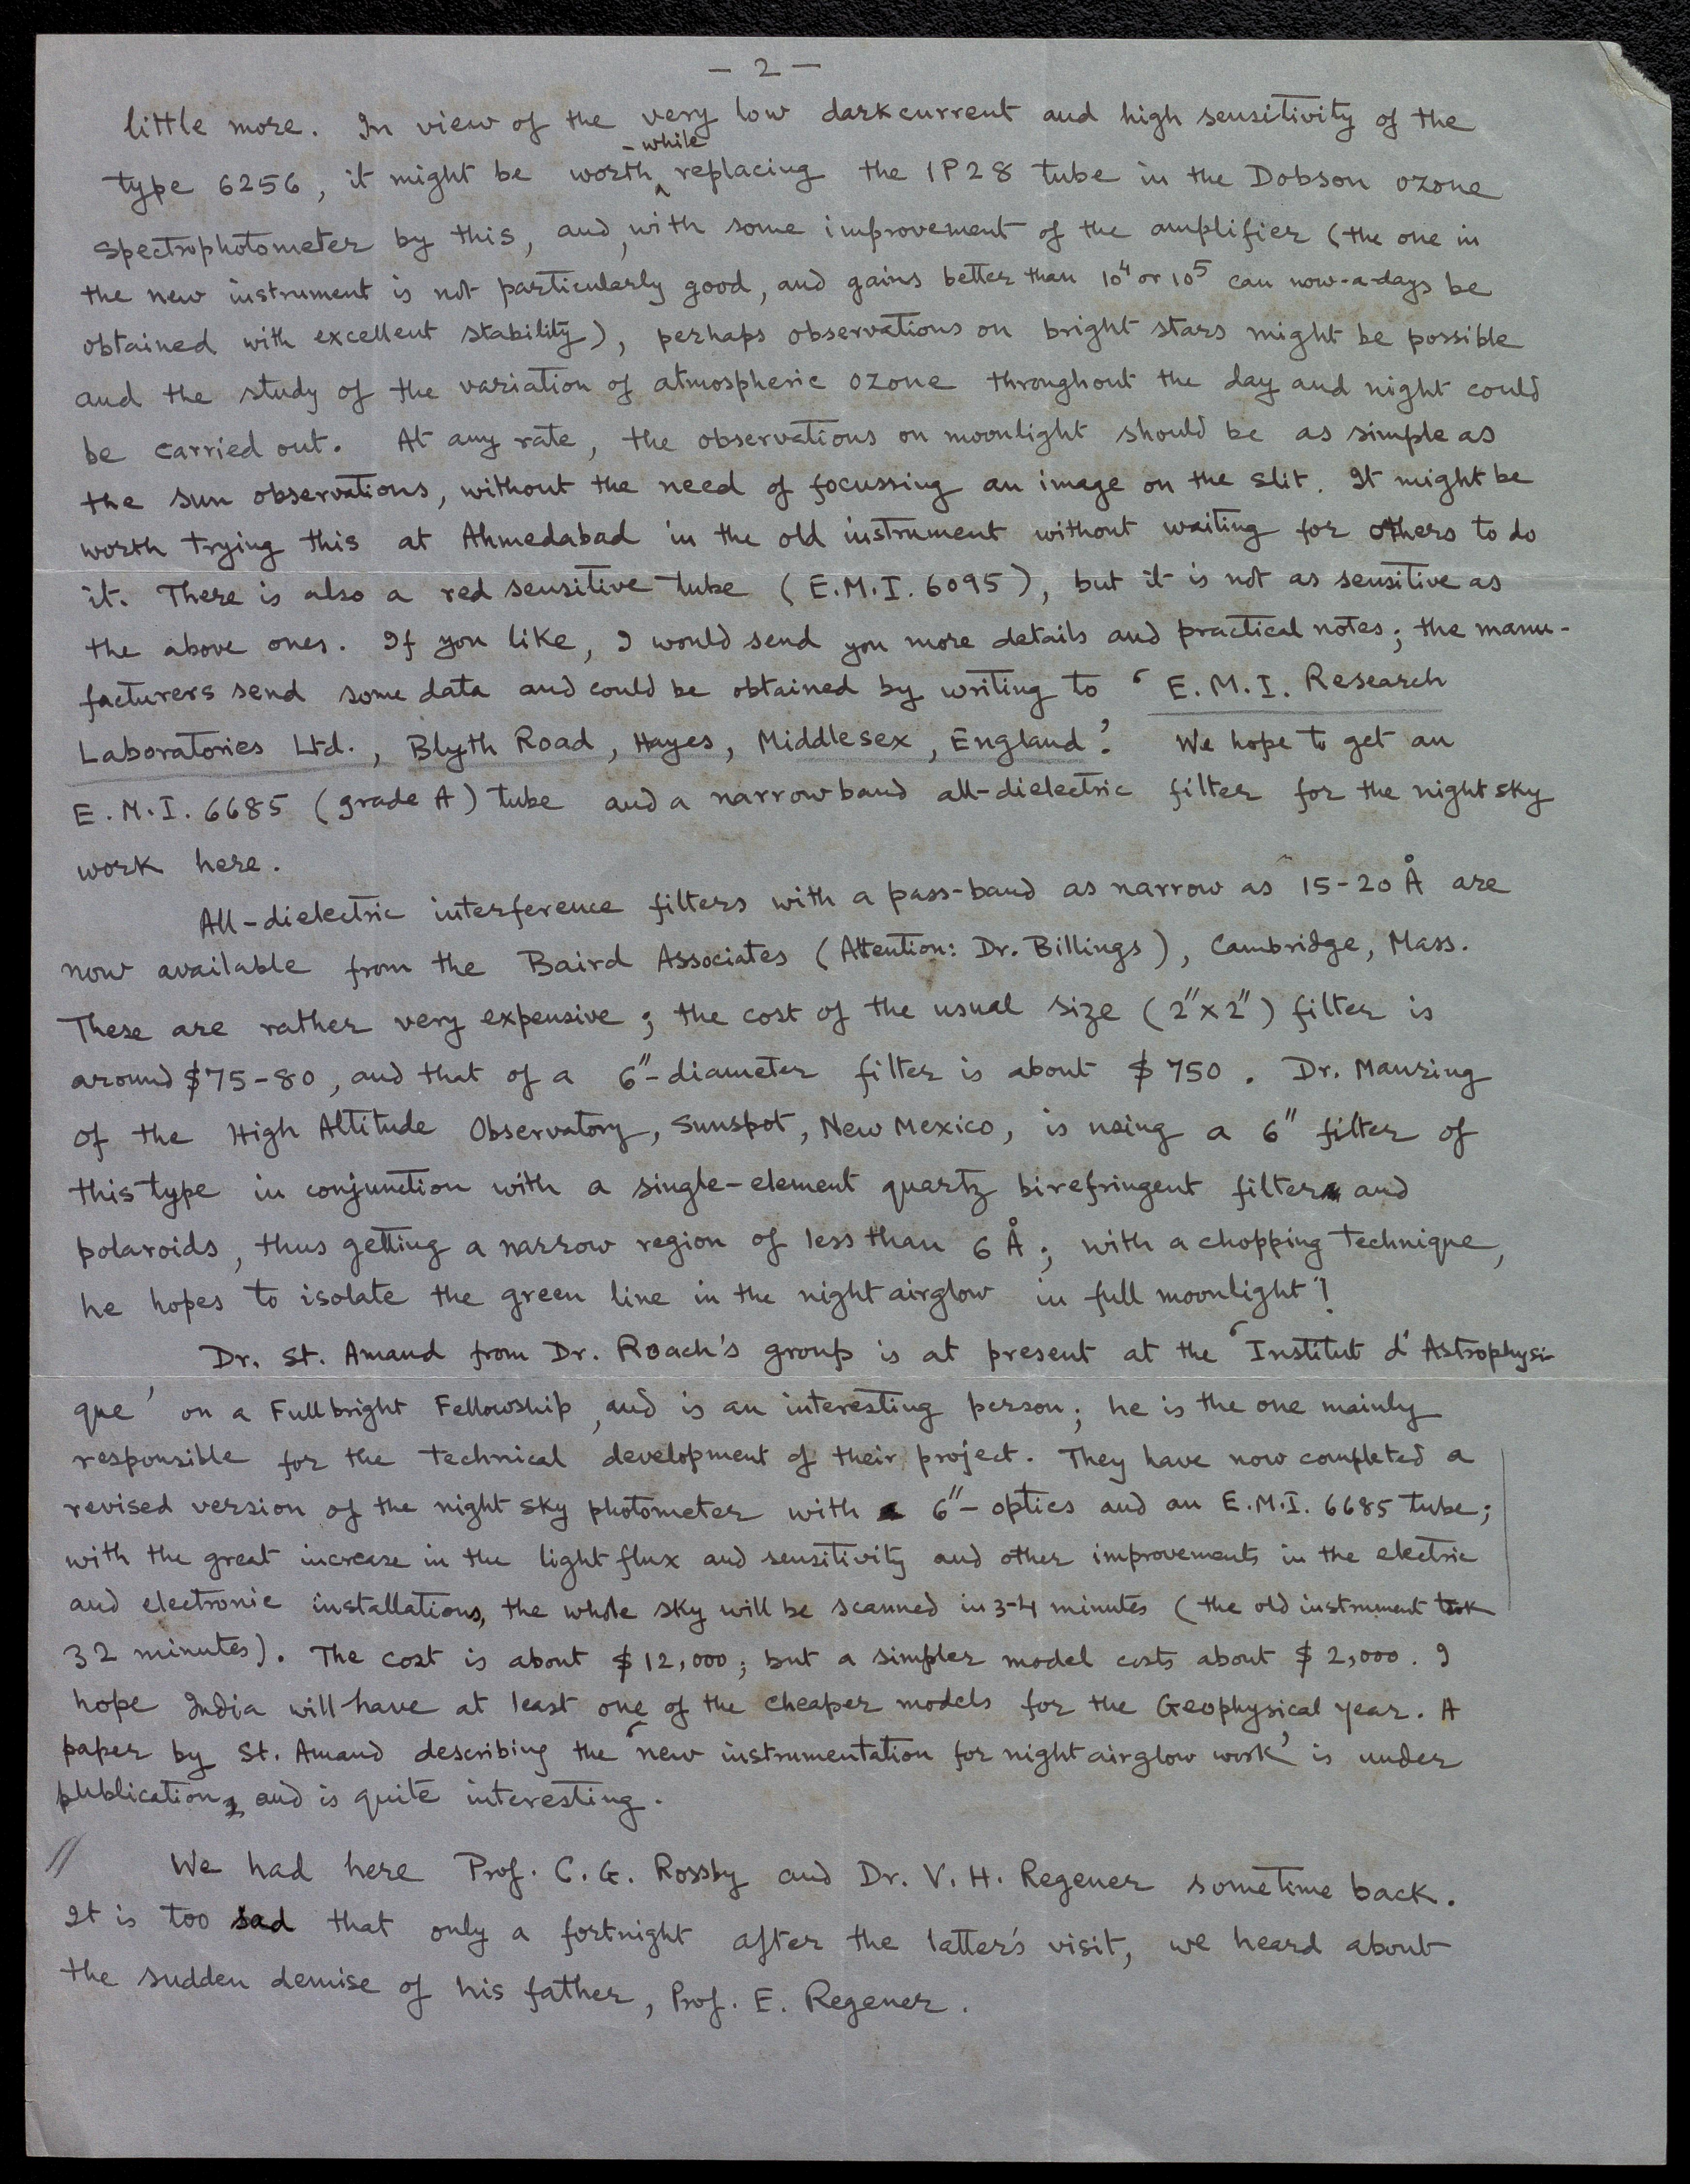 - 2 -
little more. In view of the very low dark current and high sensitivity of the
type 6256, it might be worth-while replacing the 1P28 tube in the Dobson ozone
spectrophotometer by this, and, with some improvement of the amplifier (the one in
the new instrument is not particularly good, and gains better than 10⁴ or 10⁵ can now-a-days be
obtained with excellent stability), perhaps observations on bright stars might be possible
and the study of the variation of atmospheric ozone throughout the day and night could
be carried out. At any rate, the observations on moonlight should be as simple as
the sun observations, without the need of focussing an image on the slit. It might be
worth trying this at Ahmedabad in the old instrument without waiting for others to do
it. There is also a red sensitive tube (E.M.I. 6095), but it is not as sensitive as
the above ones. If you like, I would send you more details and practical notes; the manu-
facturers send some data and could be obtained by writing to ‘E.M.I. Research
Laboratories Ltd., Blyth Road, Hayes, Middlesex, England’. We hope to get an
E.M.I. 6685 (grade A) tube and a narrow band all-dielectric filter for the night sky
work here.
All-dielectric interference filters with a pass-band as narrow as 15-20 Å are
now available from the Baird Associates (Attention: Dr. Billings), Cambridge, Mass.
These are rather very expensive; the cost of the usual size (2"x2") filter is
around $75-80, and that of a 6"-diameter filter is about $750. Dr. Manring
of the High Altitude Observatory, Sunspot, New Mexico, is using a 6" filter of
this type in conjunction with a single-element quartz birefringent filter and
polaroids, thus getting a narrow region of less than 6 Å; with a chopping technique,
he hopes to isolate the green line in the night airglow in full moonlight!
Dr. St. Amand from Dr. Roach's group is at present at the ‘Institut d'Astrophysi-
que’ on a Fullbright Fellowship, and is an interesting person; he is the one mainly
responsible for the technical development of their project. They have now completed a
revised version of the night sky photometer with 6"-optics and an E.M.I. 6685 tube;
with the great increase in the light flux and sensitivity and other improvements in the electric
and electronic installations, the whole sky will be scanned in 3-4 minutes (the old instrument took
32 minutes). The cost is about $12,000; but a simpler model costs about $2,000. I
hope India will have at least one of the cheaper models for the Geophysical year. A
paper by St. Amand describing the ‘new instrumentation for night airglow work’ is under
publication, and is quite interesting.
We had here Prof. C.G. Rossby and Dr. V.H. Regener sometime back.
It is too sad that only a fortnight after the latter's visit, we heard about
the sudden demise of his father, Prof. E. Regener.